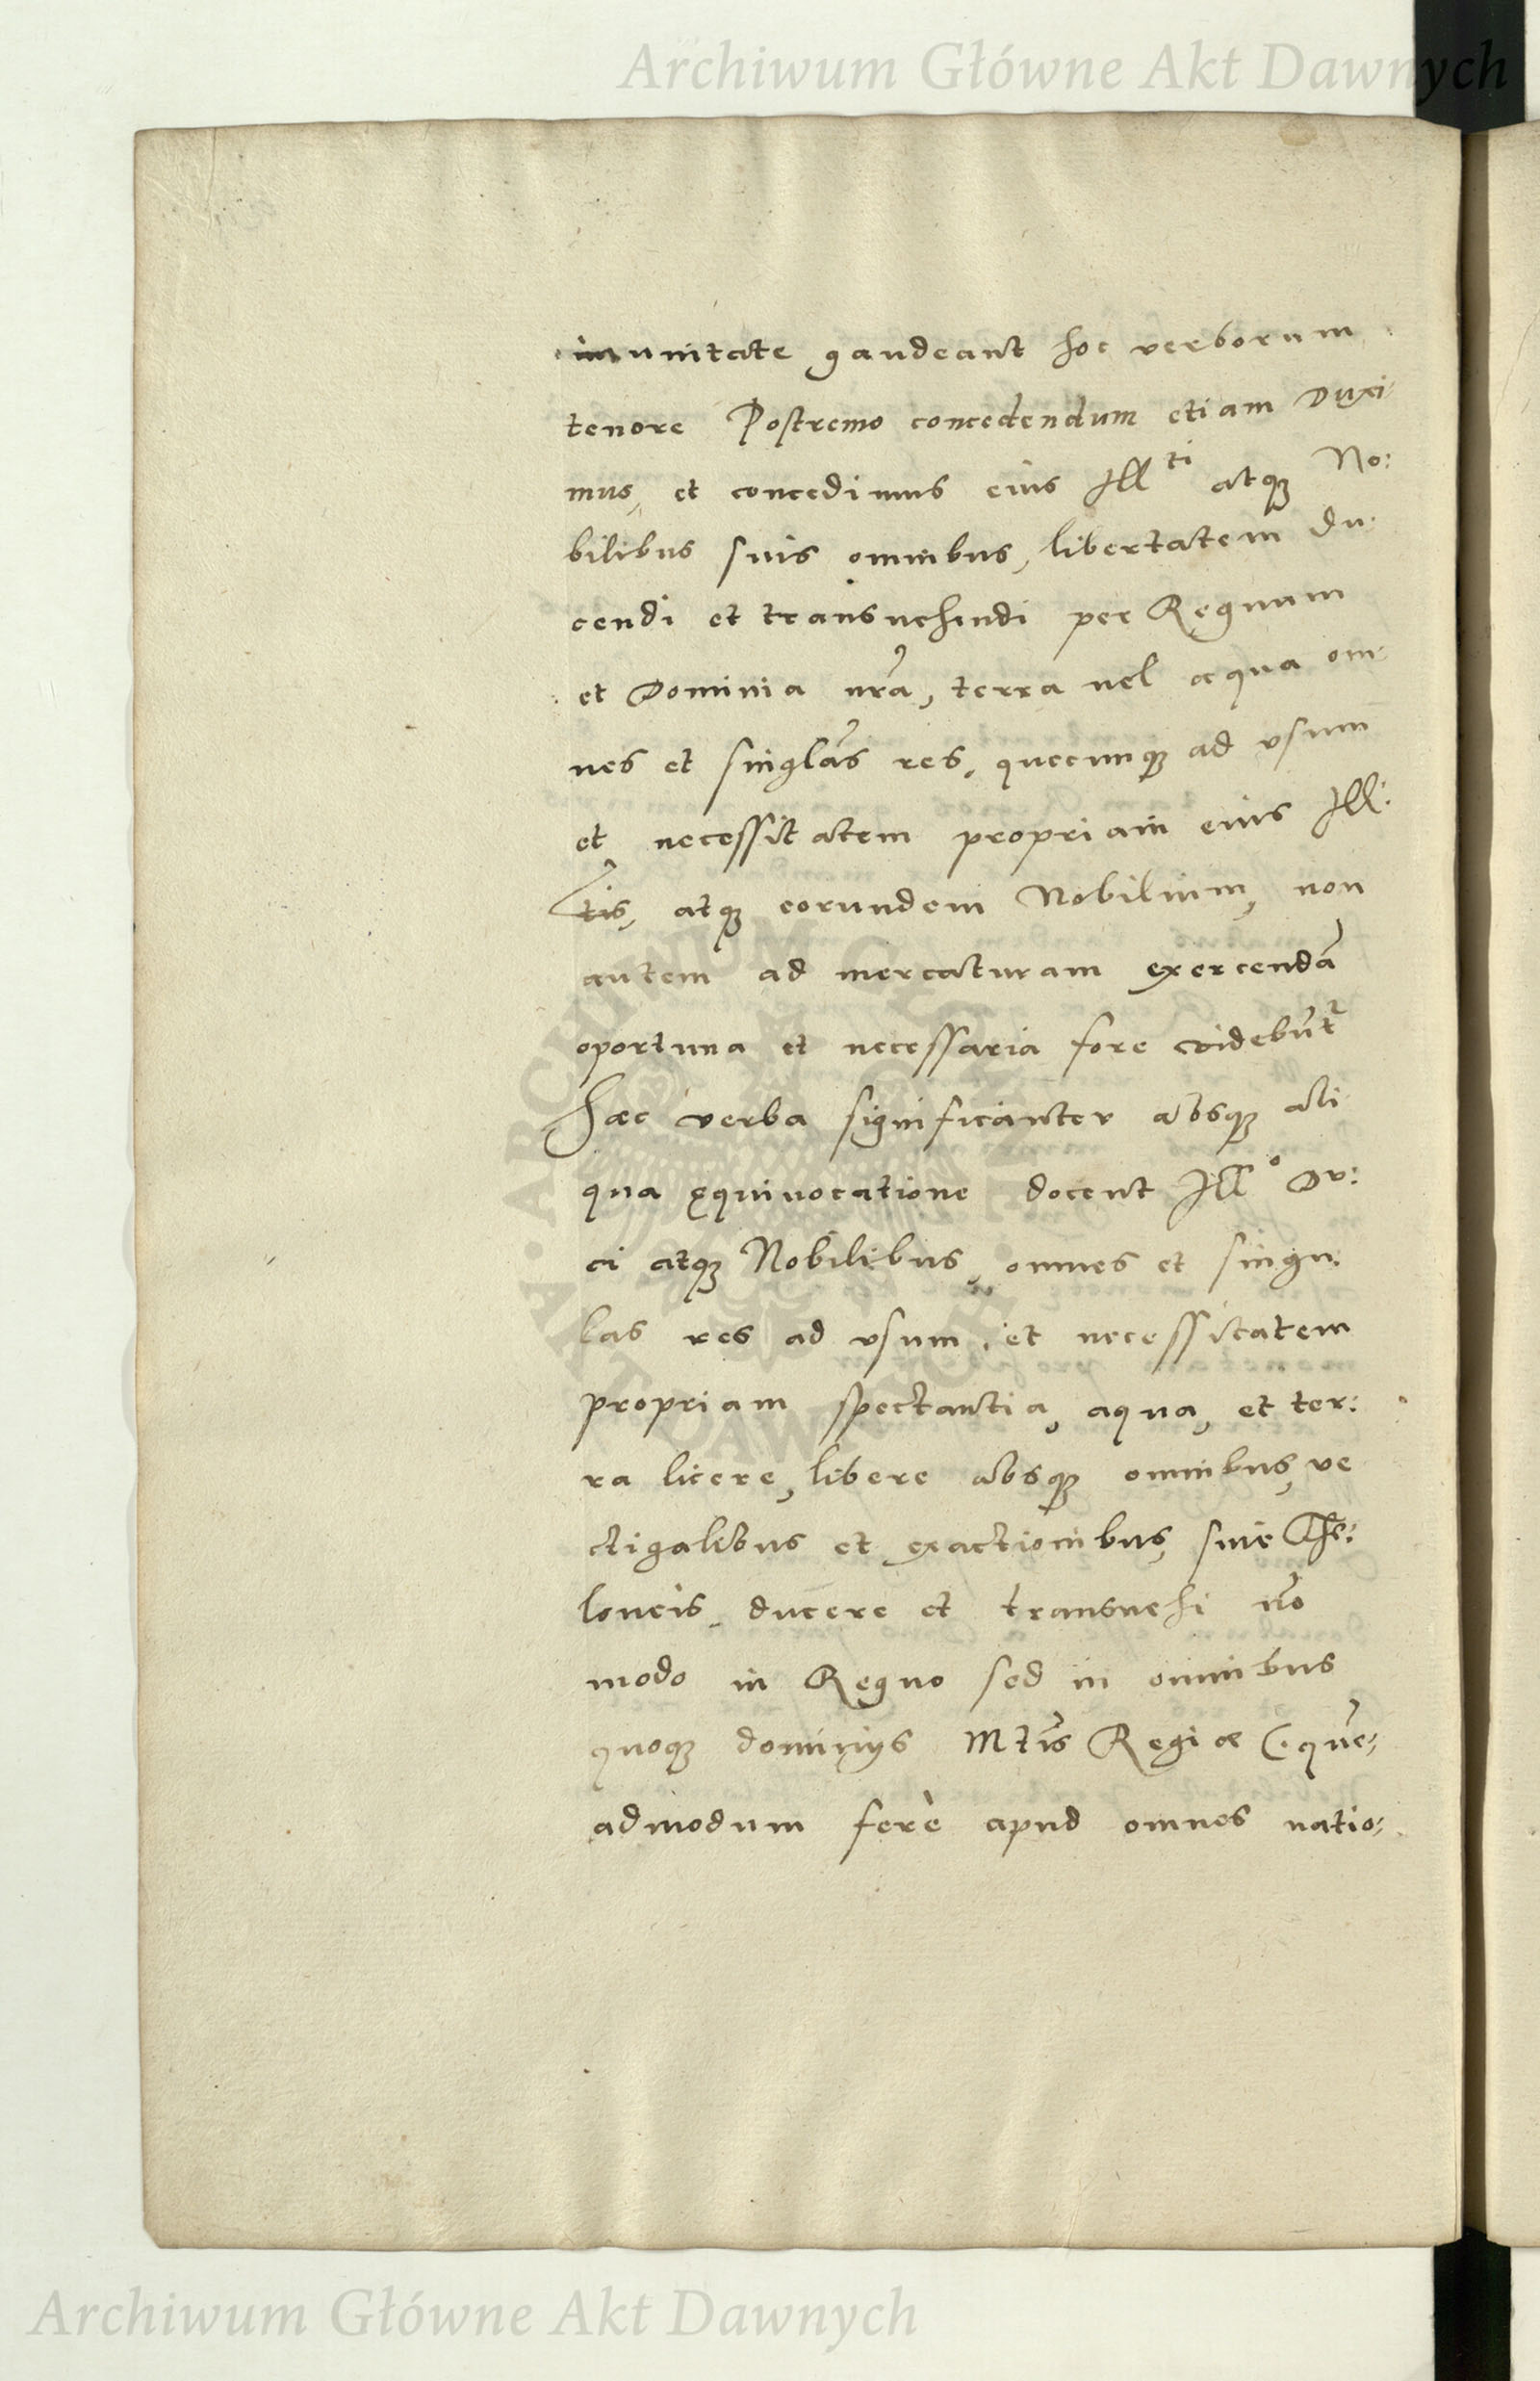 Archiwum Główne Akt Dawnych
imunitate gaudeant hoc verborum
tenore Postremo concedendum etiam Duxi-
mus, et concedimus eius Ill^ti atq₃ No:
bilibus suis omnibus, libertatem du-
cendi et transuehendi per Regnum
et Dominia nrã, terra uel aqua om-
nes et singlãs res, quecunq₃ ad vsum
et necessitatem propriam eius Ill:
tis, atq₃ eorundem Nobilium, non
autem ad mercaturam exercendã
oportuna et necessaria fore videbũt^r
Haec verba significanter absq₃ ali
qua ęquiuocatione docent Ill^o Du:
ci atq₃ Nobilibus, omnes et singu:
las res ad vsum et necessitatem
propriam spectantia, aqua, et ter:
ra licere, libere absq₃ omnibus, ve
ctigalibus et exactionibus, siue The:
loneis, ducere et transuehi nõ
modo in Regno sed in omnibus
quoq₃ dominijs Mtĩs Regiae (: quẽ-
admodum ferè apud omnes natio-
ARCHIWUM GŁÓWNE AKT DAWNYCH
Archiwum Główne Akt Dawnych